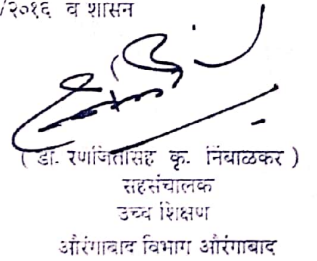 /२०१६ व शासन
( डॉ. रणजितसिंह कृ. निंबाळकर )
सहसंचालक
उच्च शिक्षण
औरंगाबाद विभाग औरंगाबाद